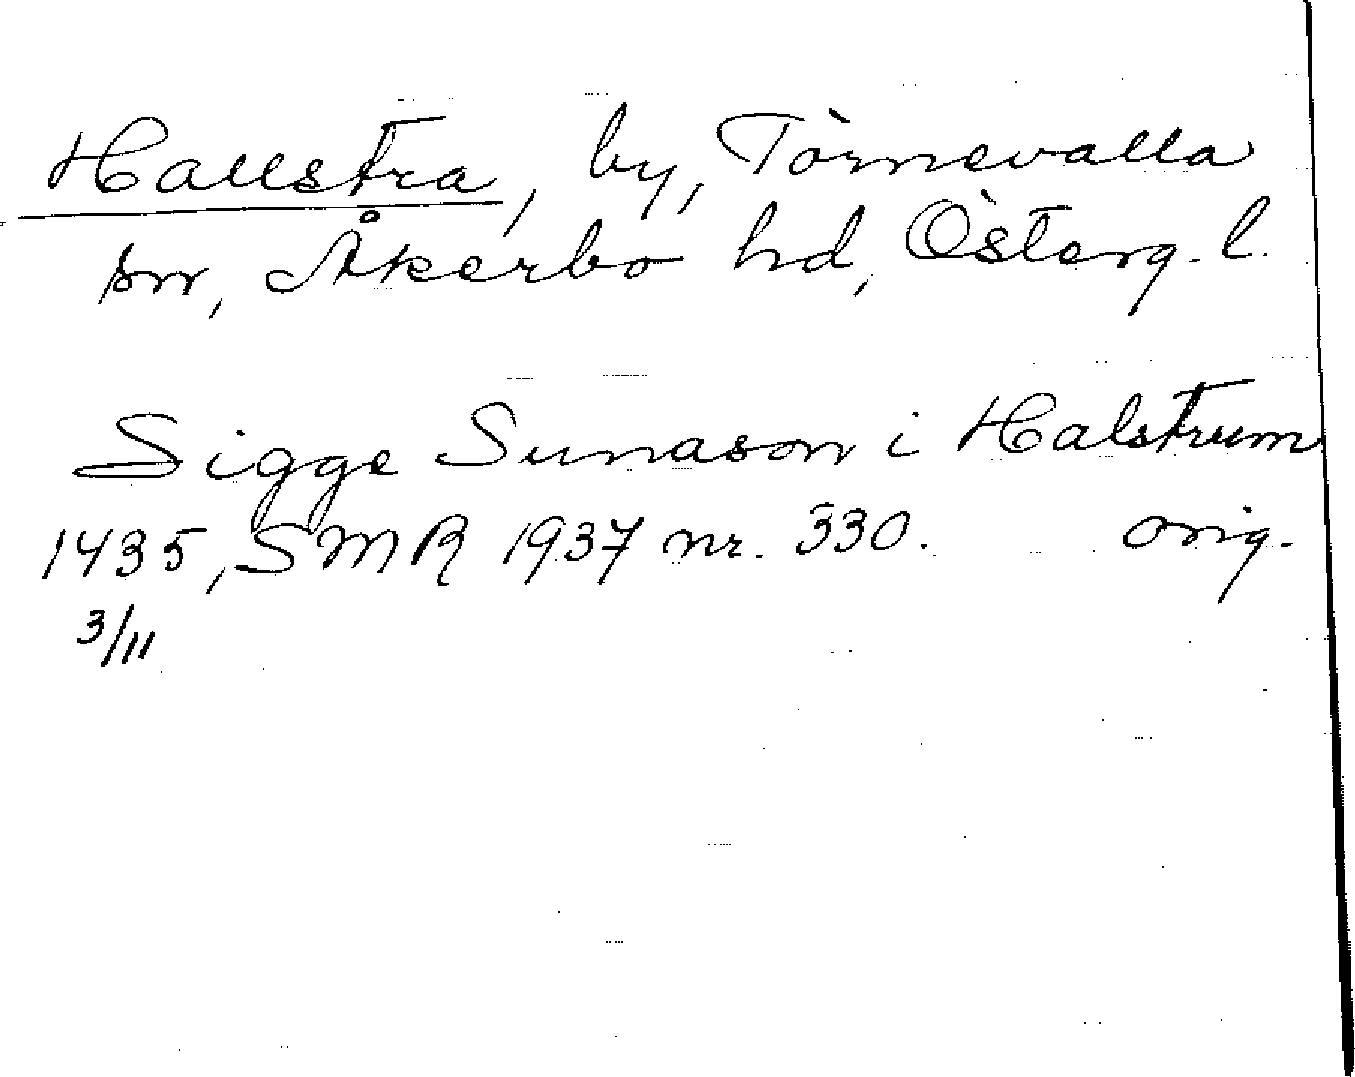 Hallstra, by, Törnevalla
sn, Åkerbo hd, Österg. l.
Sigge Sunason i Halstrum
1435, SMR 1937 nr. 330. orig.
3/11